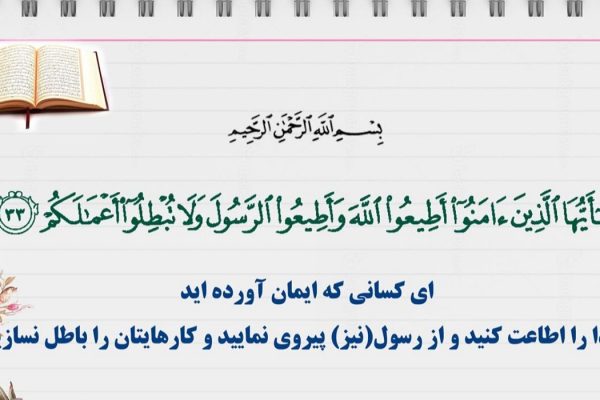 بِسْمِ ٱللَّهِ ٱلرَّحْمَٰنِ ٱلرَّحِيمِ
يَٰٓأَيُّهَا ٱلَّذِينَ ءَامَنُوٓا۟ أَطِيعُوا۟ ٱللَّهَ وَأَطِيعُوا۟ ٱلرَّسُولَ وَلَا تُبْطِلُوٓا۟ أَعْمَٰلَكُمْ ۝٣٣
ای کسانی که ایمان آورده اید
را اطاعت کنید و از رسول(نیز) پیروی نمایید و کارهایتان را باطل